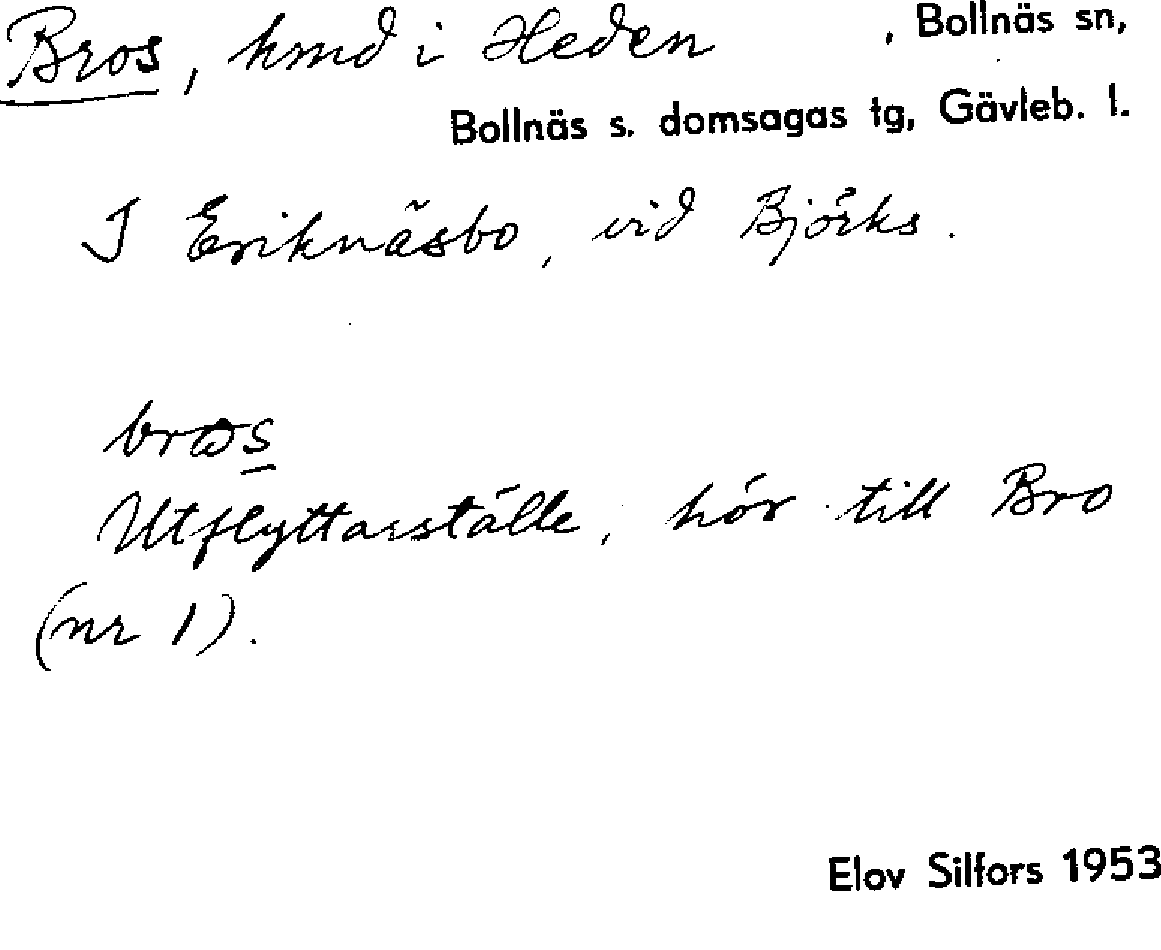 Bros, hmd i Heden , Bollnäs sn,
Bollnäs s. domsagas tg, Gävleb. l.
I Eriknäsbo, vid Björks.
bros
Utflyttarställe, hör till Bro
(nr 1).
Elov Silfors 1953